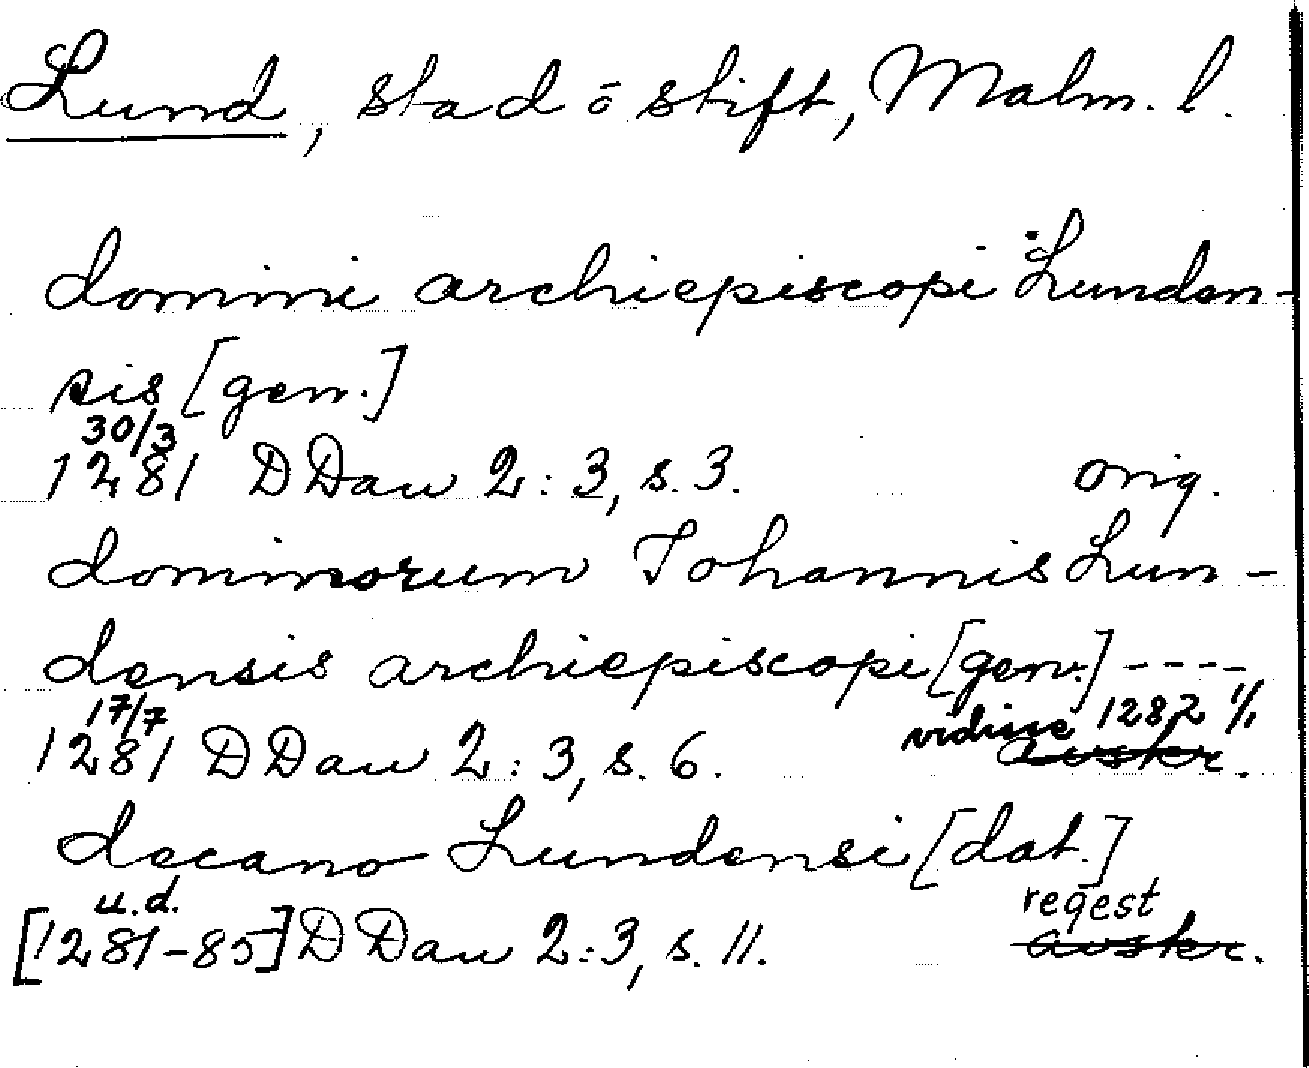 Lund, stad ō stift, Malm. l.
domini archiepiscopi Lunden-
sis [gen.]
30/3
1281 DDan 2:3, s. 3. orig.
dominorum Johannis Lun-
densis archiepiscopi [gen.] ----
17/7 vidisse 1282
1281 DDan 2:3, s. 6. avskr.
decano Lundensi [dat.]
u.d. regest
[1281-85] DDan 2:3, s. 11. avskr.